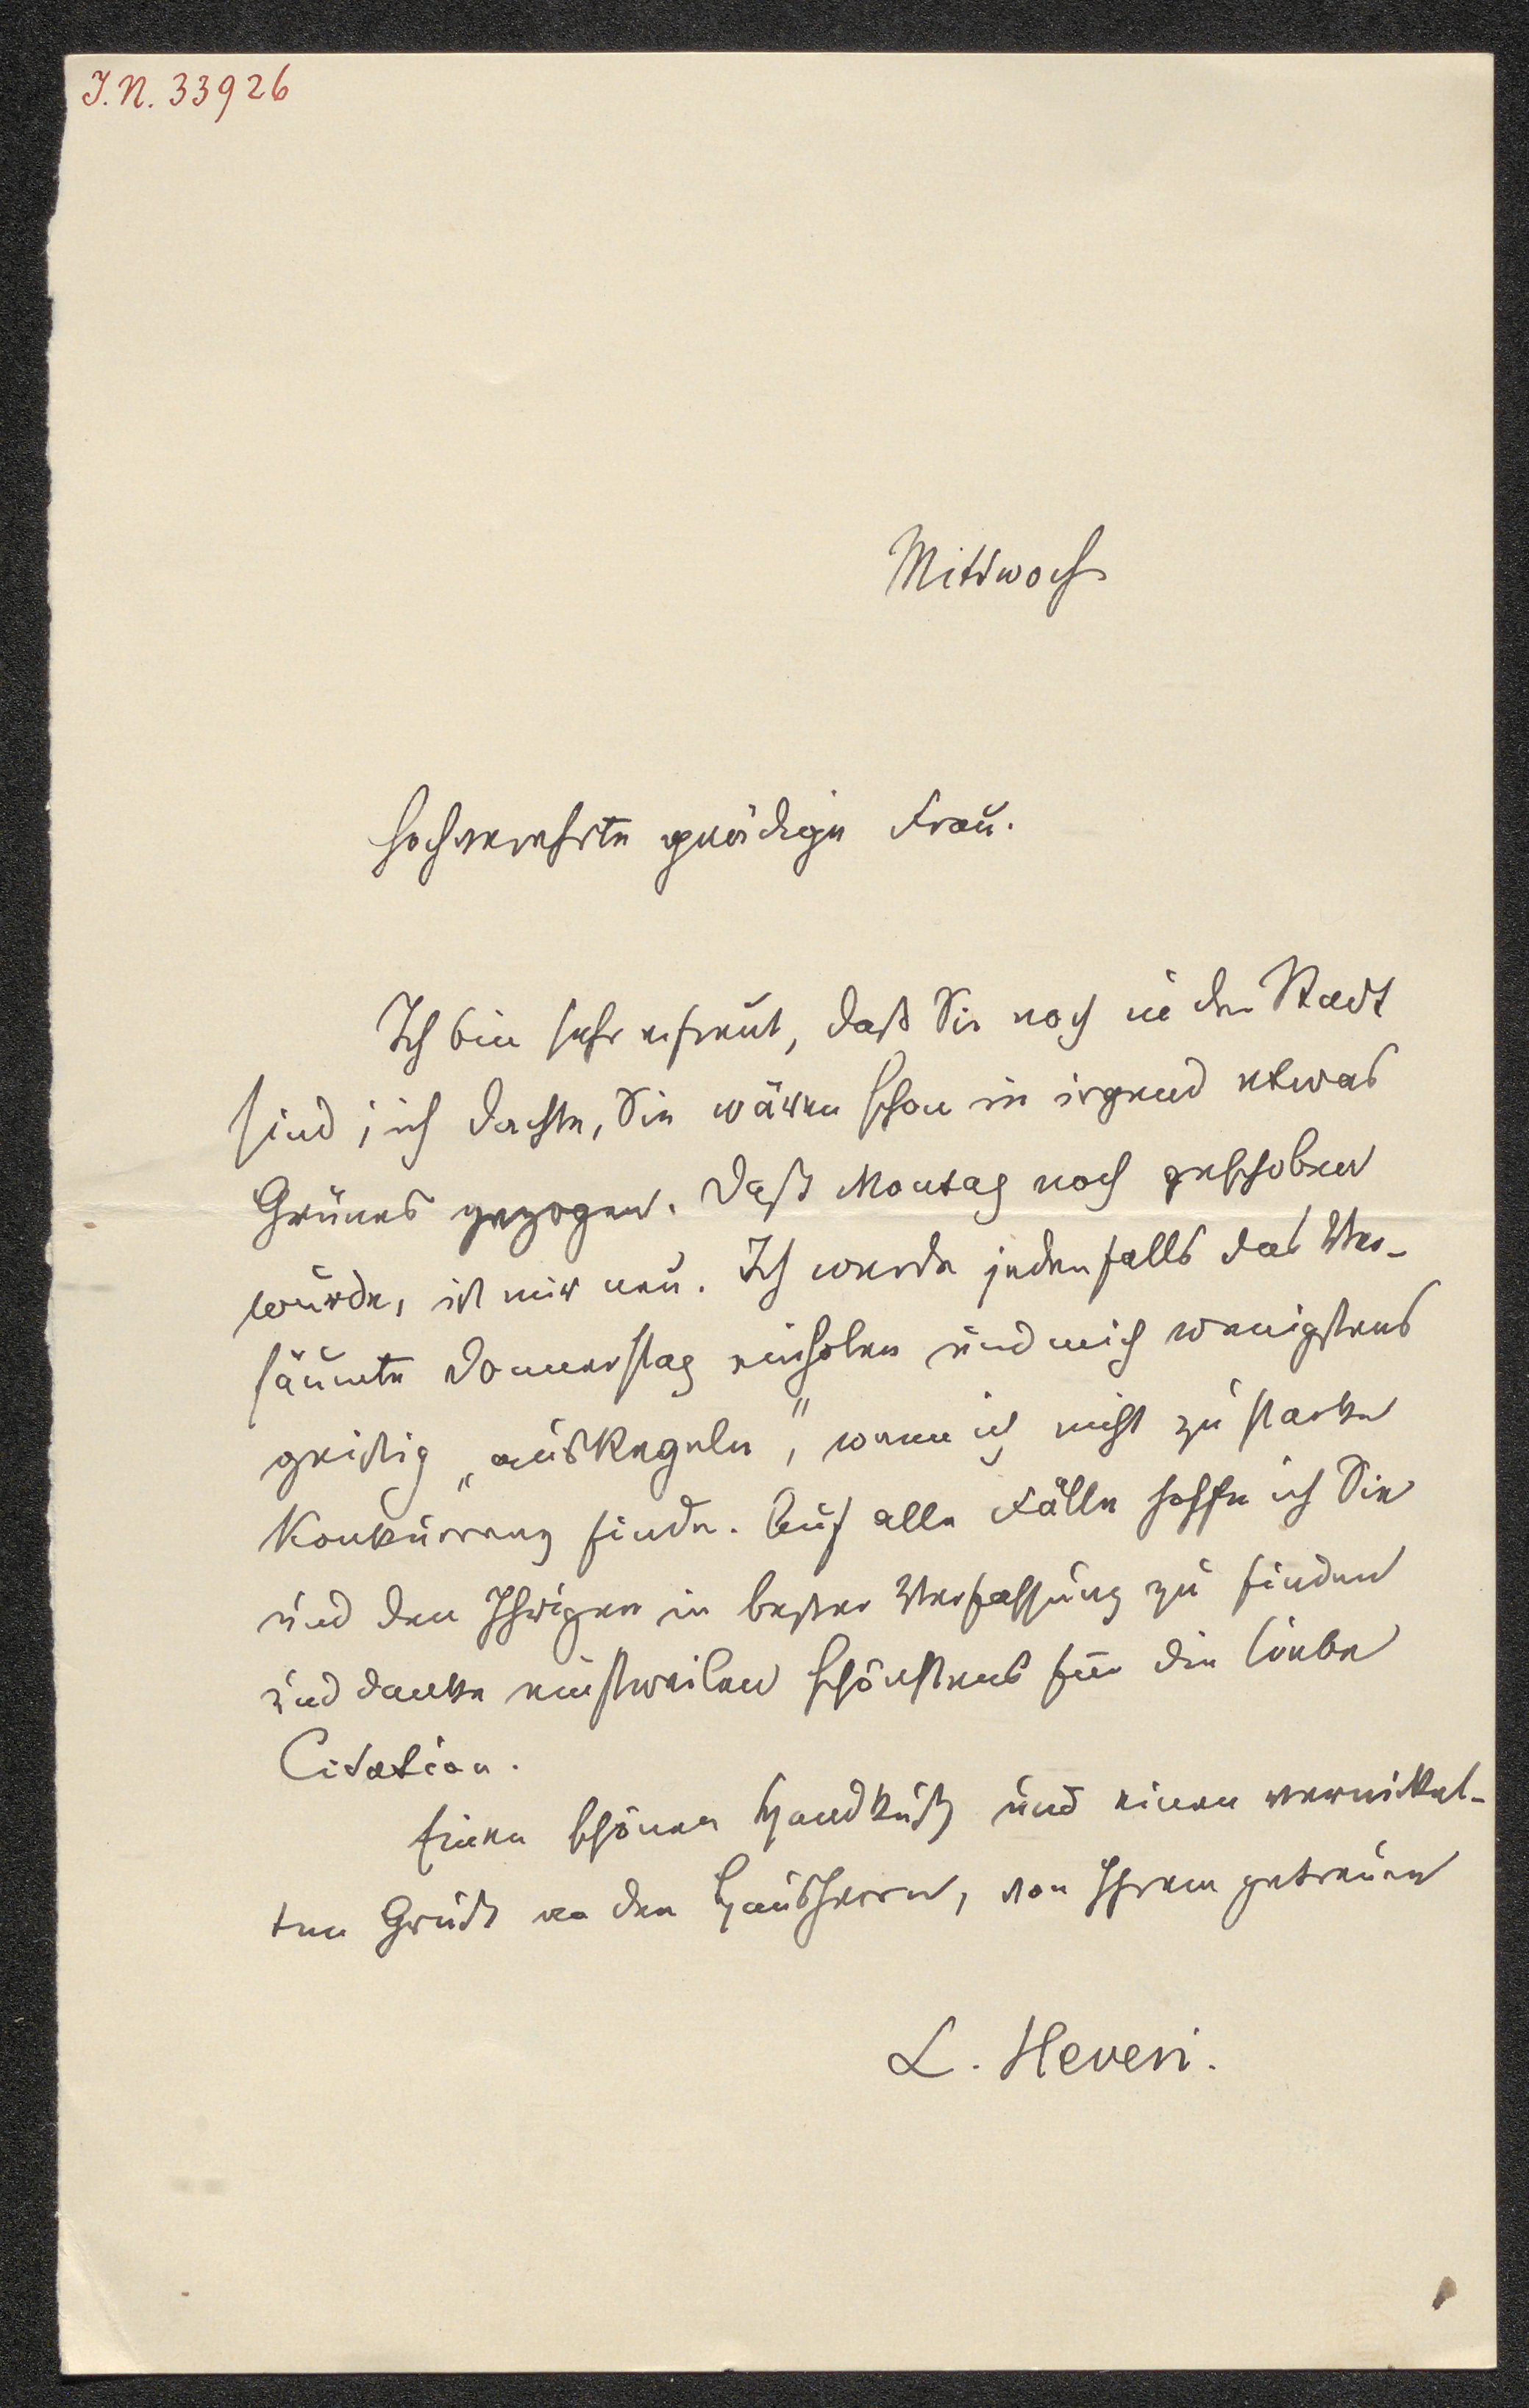 J.N. 33926
Mittwoch
Hochverehrte gnädige Frau.
Ich bin sehr erfreut, daß Sie noch in der Stadt
sind; ich dachte, Sie wären schon in irgend etwas
Grünes gezogen. Daß Montag noch geschoben
wurde, ist mir neu. Ich werde jedenfalls das Ver-
säumte Donnerstag einholen und mich wenigstens
geistig „auskegeln", wenn ich nicht zu starke
Konkurrenz finde. Auf alle Fälle hoffe ich Sie
und den Ihrigen in bester Verfassung zu finden
und danke einstweilen schönstens für die liebe
Citation.
Einen schönen Handkuß und einen vernickel-
ten Gruß an den Hausherrn, von Ihrem getreuen
L. Hevesi.